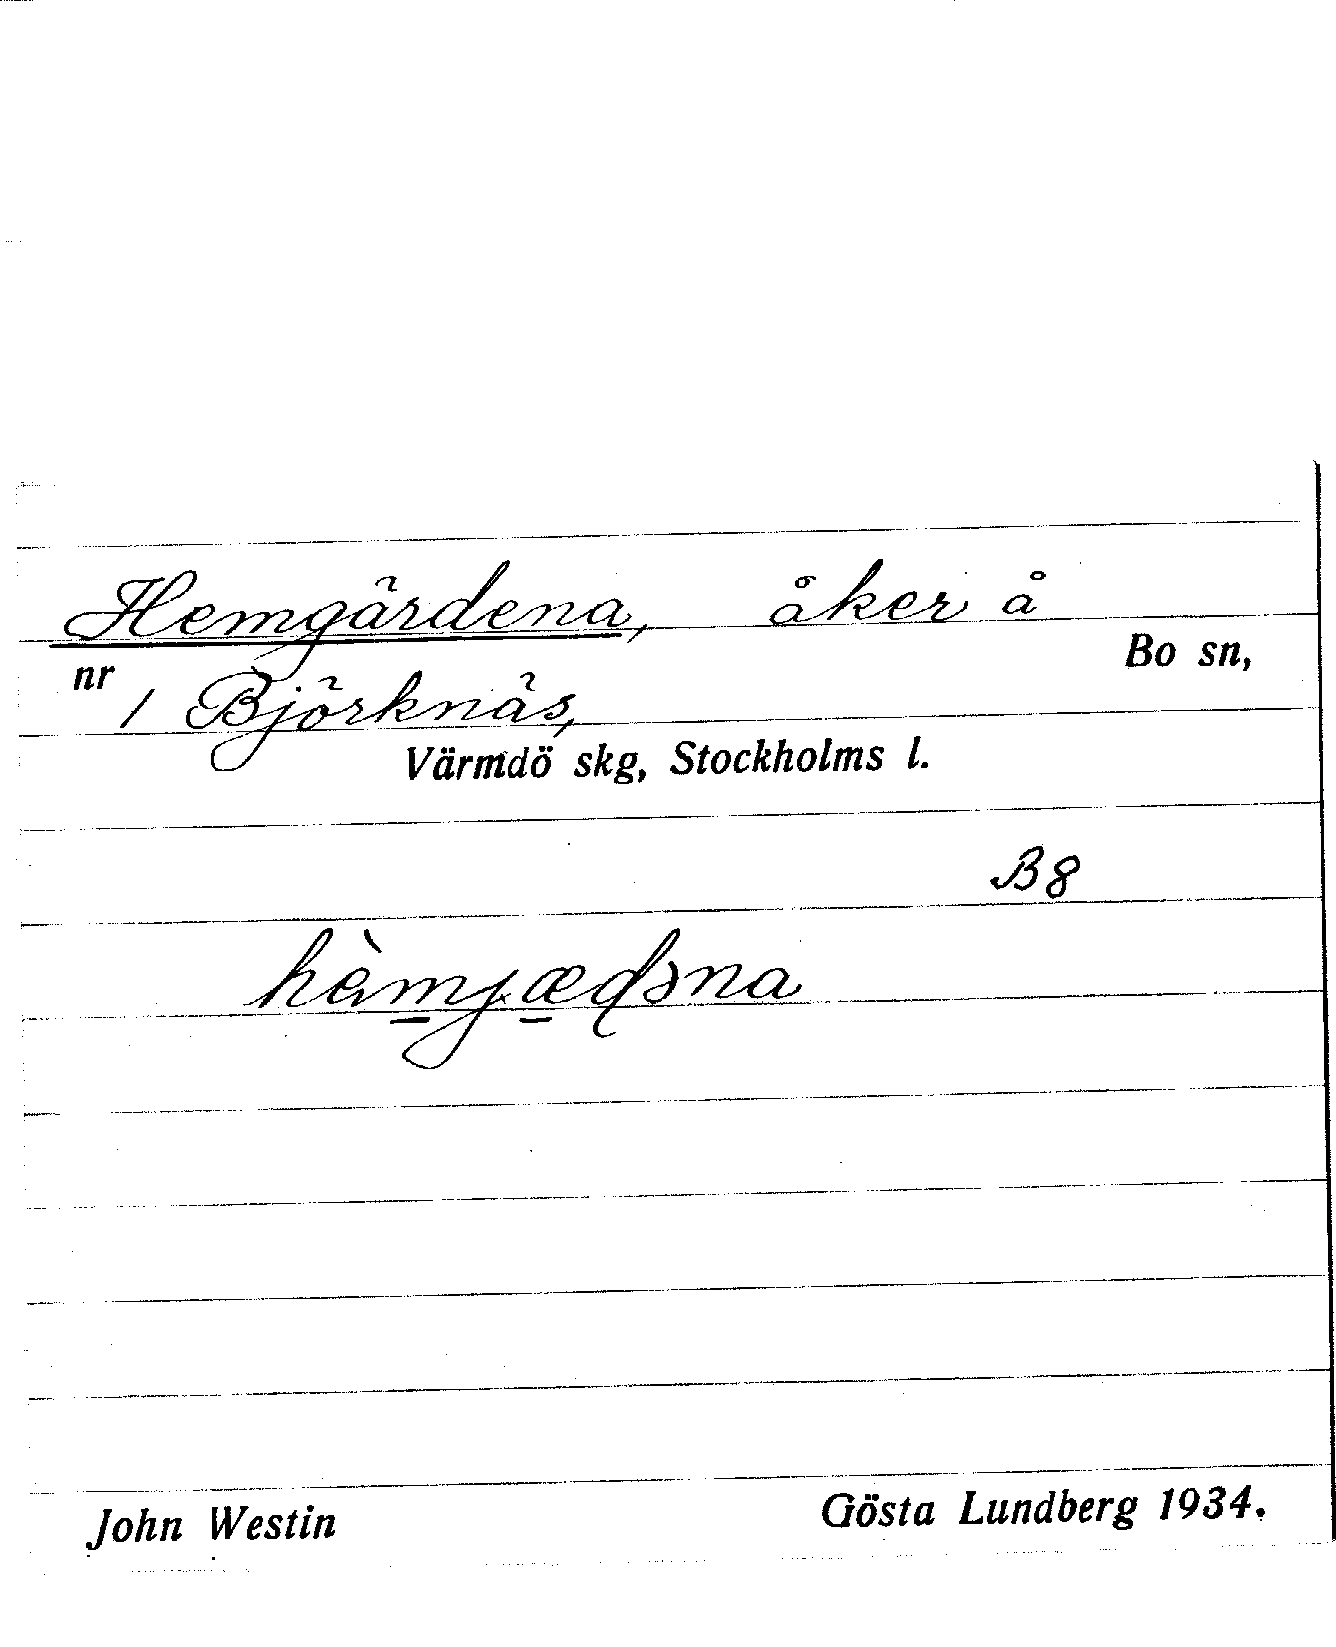 Hemgärdena, åker å
Bo sn,
nr 1 Björknäs,
Värmdö skg, Stockholms l.
B8
hèmjæɖəna
John Westin Gösta Lundberg 1934.